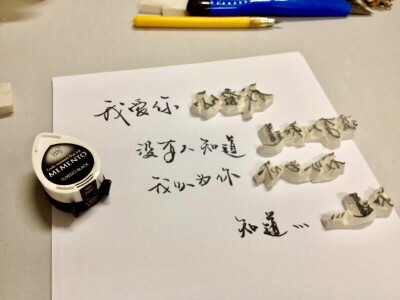 我爱你
没有人知道
我以为你
知道...
MEMENTO
TUXEDO BLACK